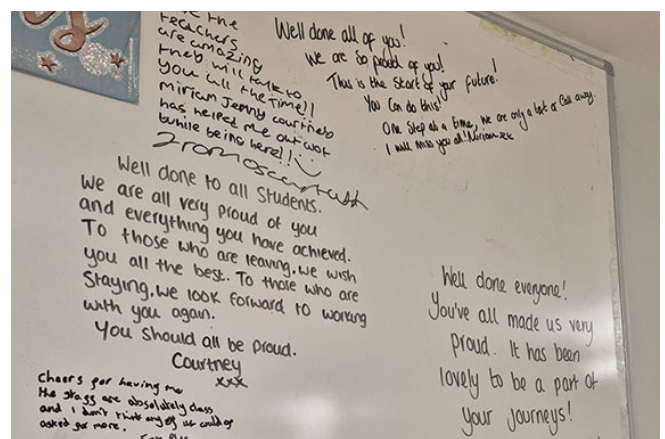 the
teachers
are amazing
they will talk to
you all the time!!
Miriam Jenny courtney
has helped me out
while being here!!
From
Well done all of you!
We are so proud of you!
This is the start of your future!
You can do this!
One step at a time, we are only a text or call away.
I will miss you all! Miriam xx
Well done to all students.
We are all very proud of you
and everything you have achieved.
To those who are leaving, we wish
you all the best. To those who are
staying, we look forward to working
with you again.
You should all be proud.
Courtney
xxx
Well done everyone!
You've all made us very
proud. It has been
lovely to be a part of
your journeys!
Cheers for having me
the staff are absolutely class
and I don't think any of us could of
asked for more.